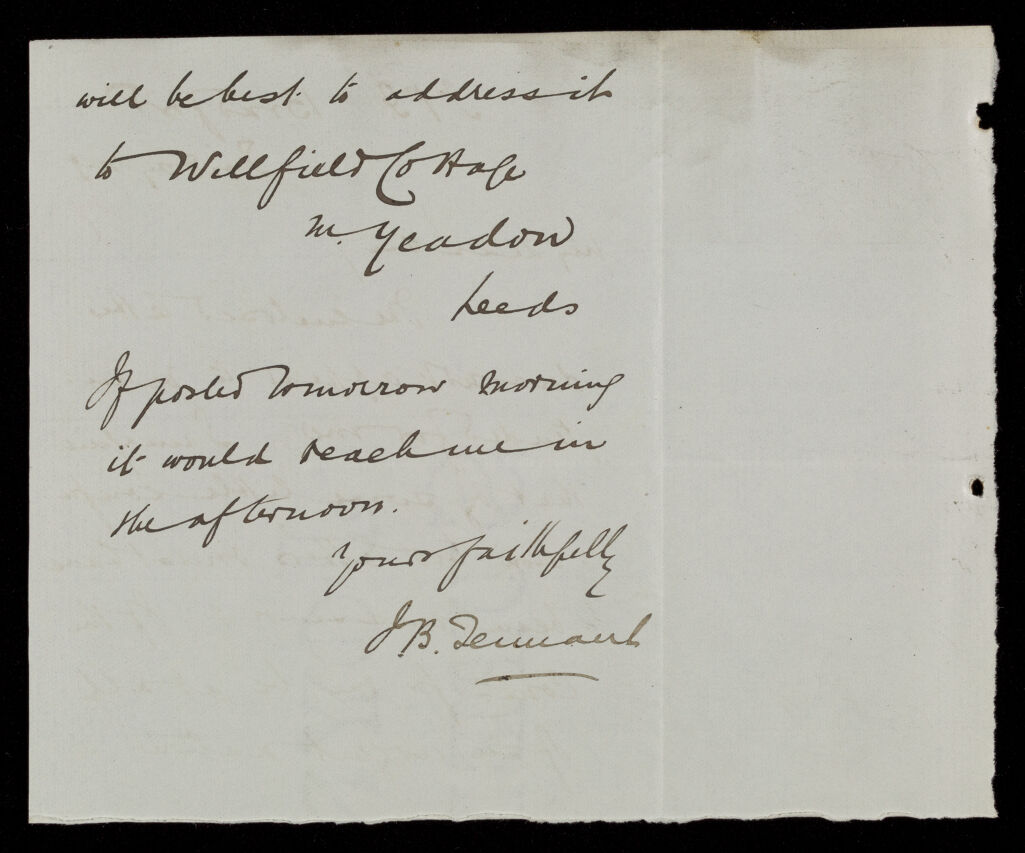 will be best to address it
to Wellfield Cottage
Yeadon
Leeds
If posted tomorrow morning
it would reach me in
the afternoon.
Yours faithfully
J.B. Tennant